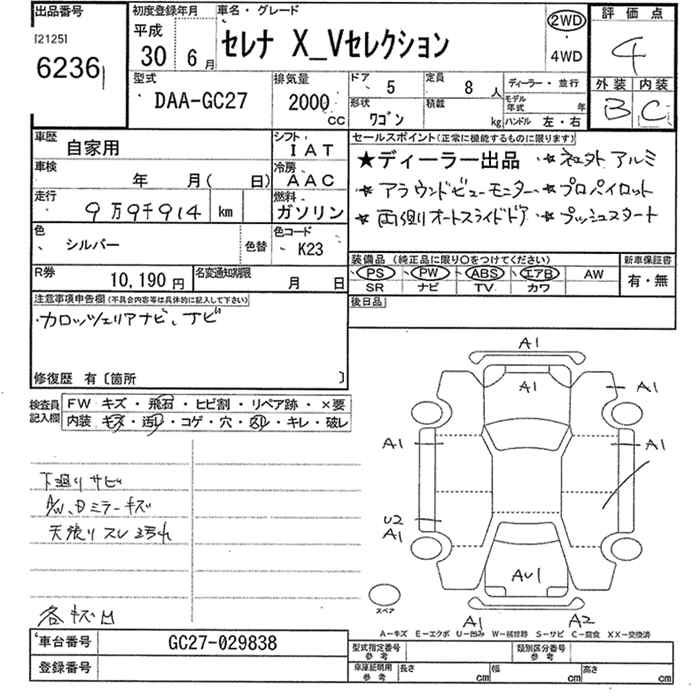 出品番号 初度登録年月 車名・グレード 2WD 評価点
[2125] 平成 セレナ X_Vセレクション 4
6236 30 6月 4WD
型式 排気量 ドア 5 定員 8人 ディーラー・並行 外装 内装
DAA-GC27 2000cc 形状 ワゴン 積載 kg モデル年式 年 B C
ハンドル 左・右
車歴 自家用 シフト IAT セールスポイント(正常に機能するものに限ります)
車検 年 月( 日) 冷房 AAC ★ディーラー出品 ★ アルミ
走行 9万9千914 km 燃料 ガソリン ★アラウンドビューモニター ★プロパイロット
★両側オートスライドドア ★プッシュスタート
色 シルバー 色替 色コード K23
装備品(純正品に限り○をつけてください) 新車保証書
R券 10,190円 名変通知期限 月 日 PS PW ABS エアB AW 有・無
SR ナビ TV カワ
注意事項申告欄(不具合内容等は具体的に記入して下さい) 後日品
カロッツェリアナビ、ナビ
修復歴 有〔箇所 〕
検査員記入欄 FW キズ・飛石・ヒビ割・リペア跡・×要
内装 キズ・汚レ・コゲ・穴・スレ・キレ・破レ
A1
A1 A1
A1 A1
下廻りサビ
A/W、Dミラーキズ
U2
天張りスレ汚れ
A1
AU1
スペア
各キズ凹
A1 A2
A-キズ E-エクボ U-凹み W-補修跡 S-サビ C-腐食 XX-交換済
車台番号 GC27-029838
型式指定番号 参考 類別区分番号 参考
登録番号 車庫証明用 参考 長さ cm 幅 cm 高さ cm